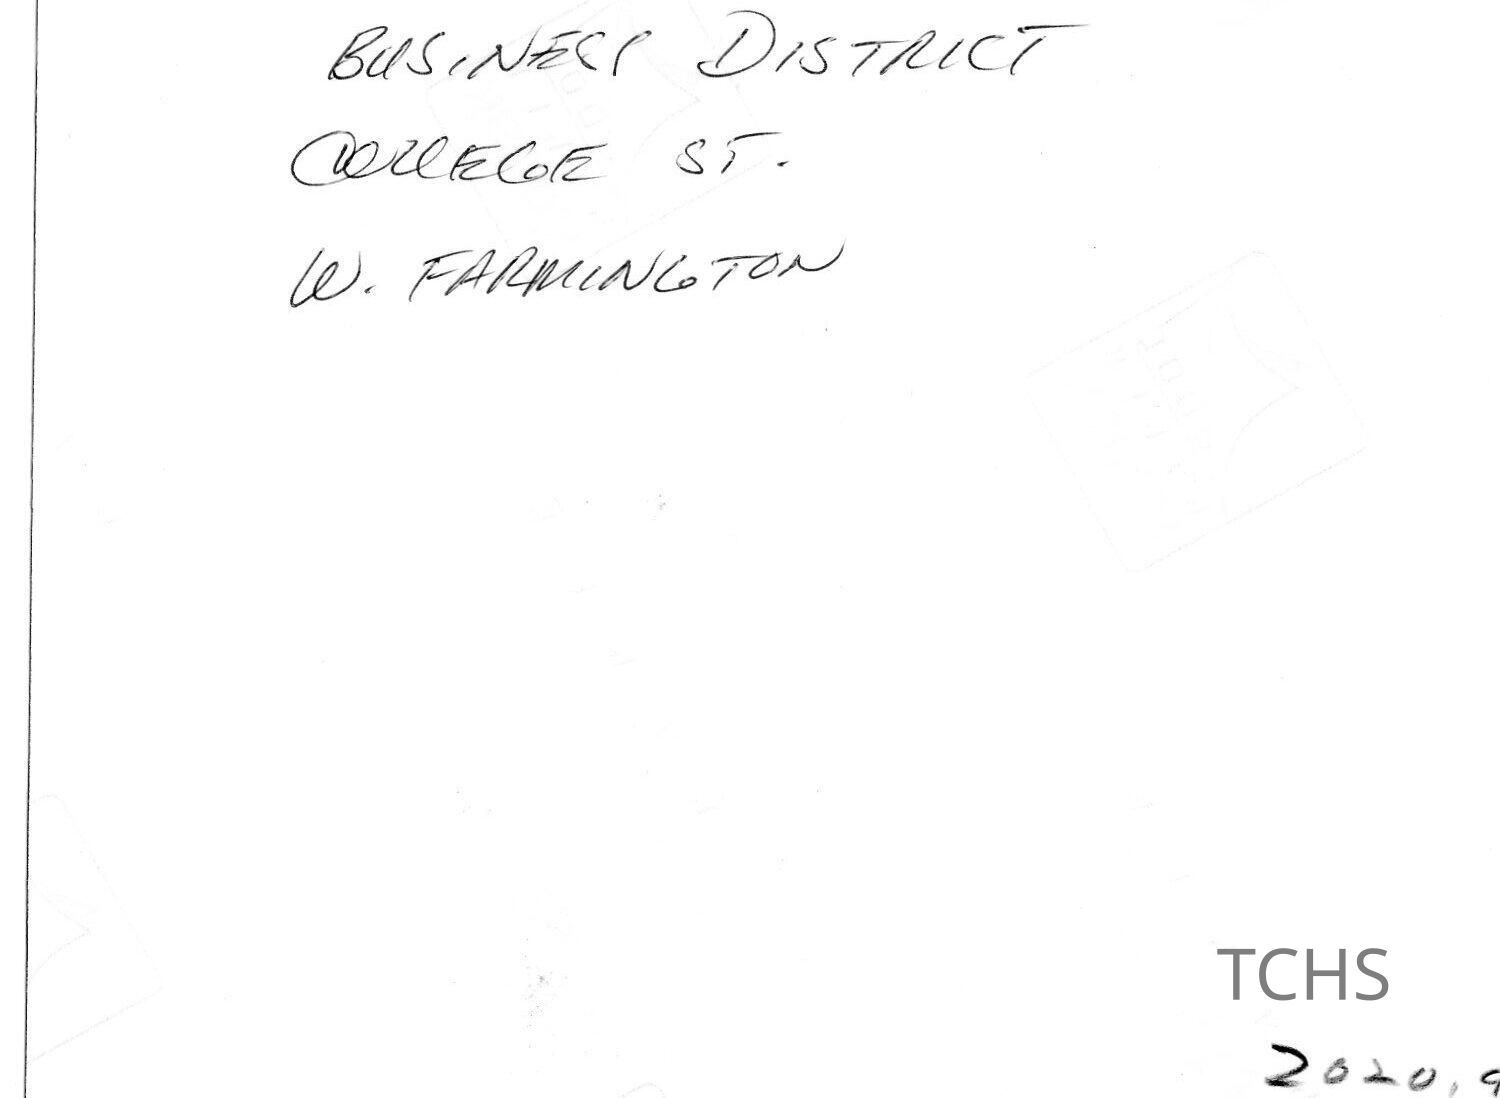 BUSINESS DISTRICT
COLLEGE ST.
W. FARMINGTON
TCHS
2020.9